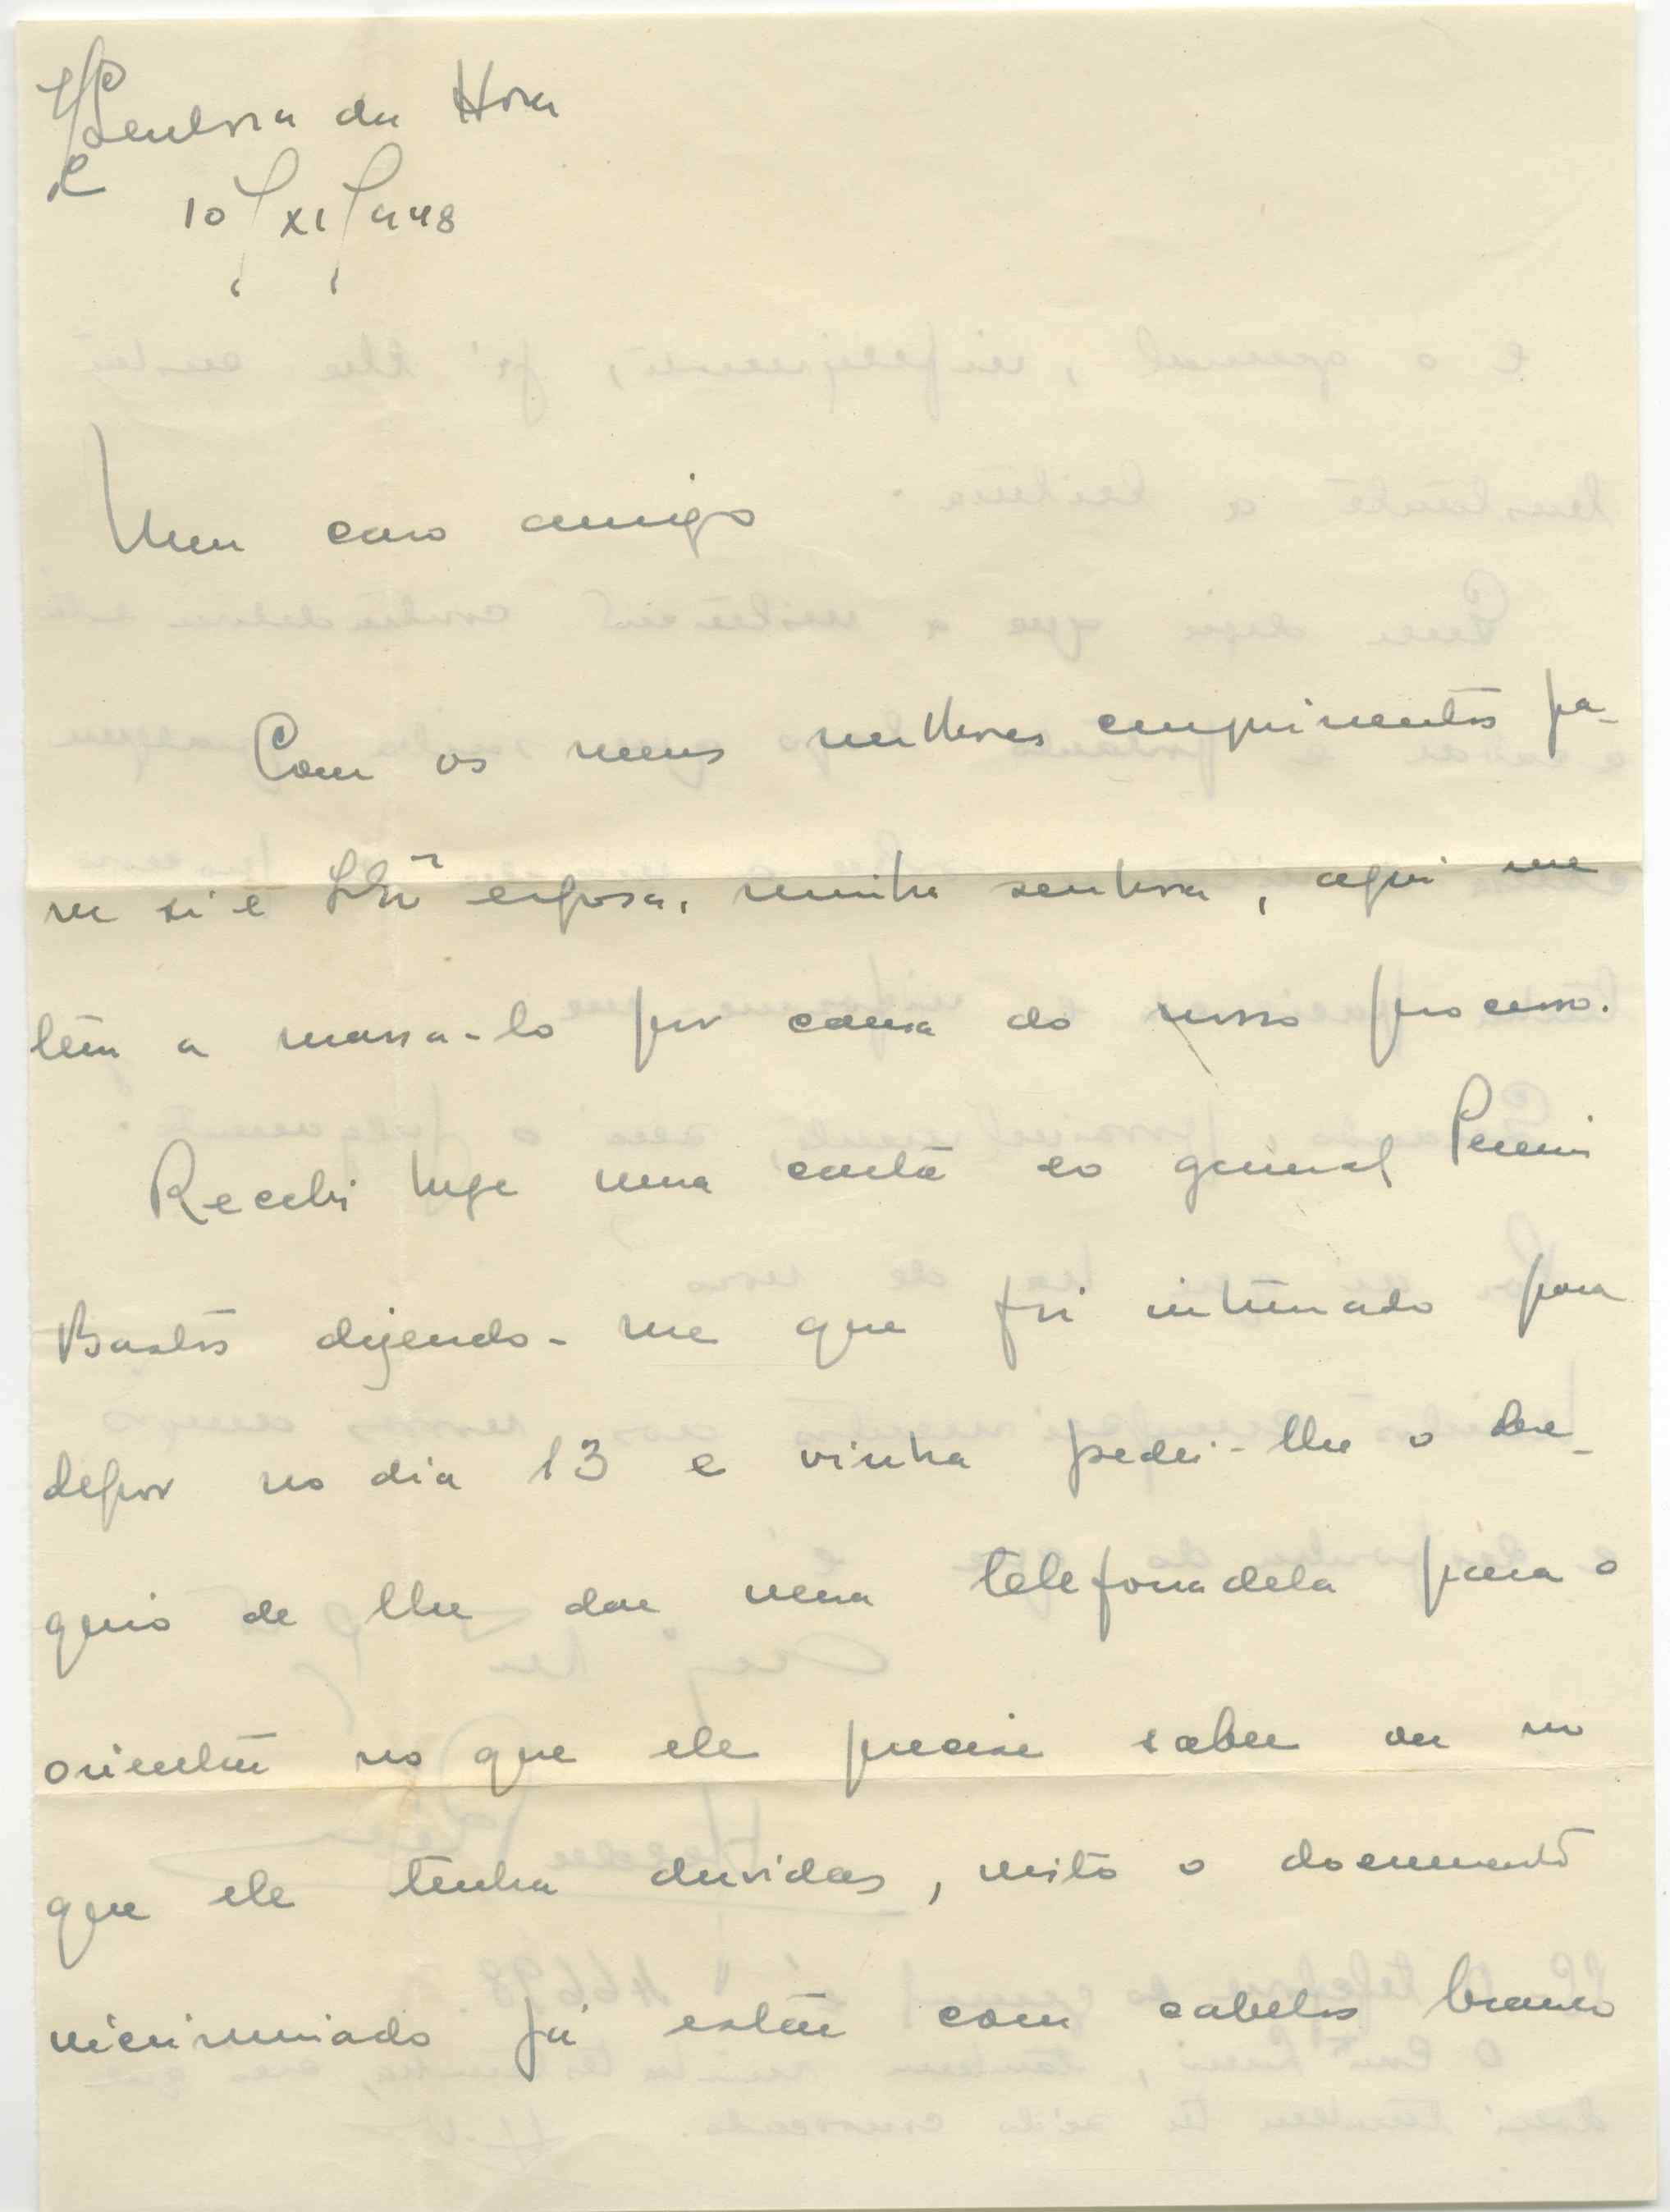 Senhora da Hora
10/XI/948
Meu caro amigo
Com os meus melhores cumprimentos pa-
ra si e esposa, minha senhora, aqui me
tem a massa-lo por causa do nosso processo.
Recebi hoje uma carta do general Pereira
Bastos dizendo-me que foi intimado para
depor no dia 13 e vinha pedir-lhe o obse-
quio de lhe dar uma telefonadela para o
orientar no que ele precise saber ou no
que ele tenha duvidas, visto o documento
incriminado já estar com cabelos brancos